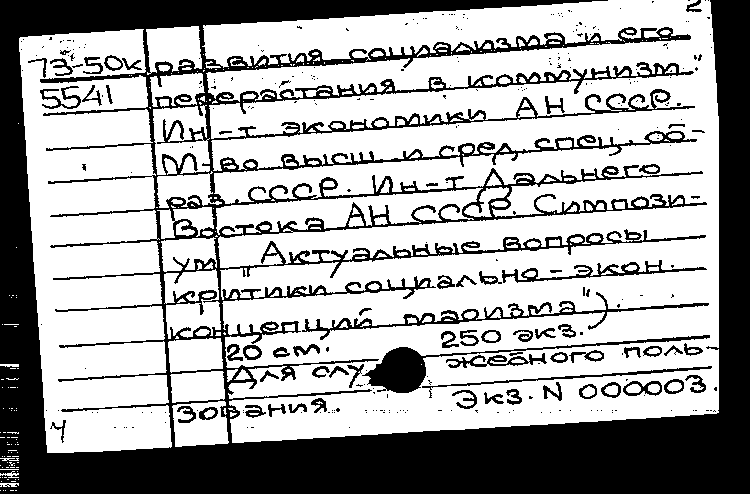 2
73-50к развития социализма и его
5541 перерастания в коммунизм."
Ин-т экономики АН СССР.
М-во высш. и сред. спец. об-
раз. СССР. Ин-т Дальнего
Востока АН СССР. Симпози-
ум „Актуальные вопросы
критики социально-экон.
концепций маоизма").
20 см. 250 экз.
Для служебного поль-
зования. Экз. N 000003.
ч